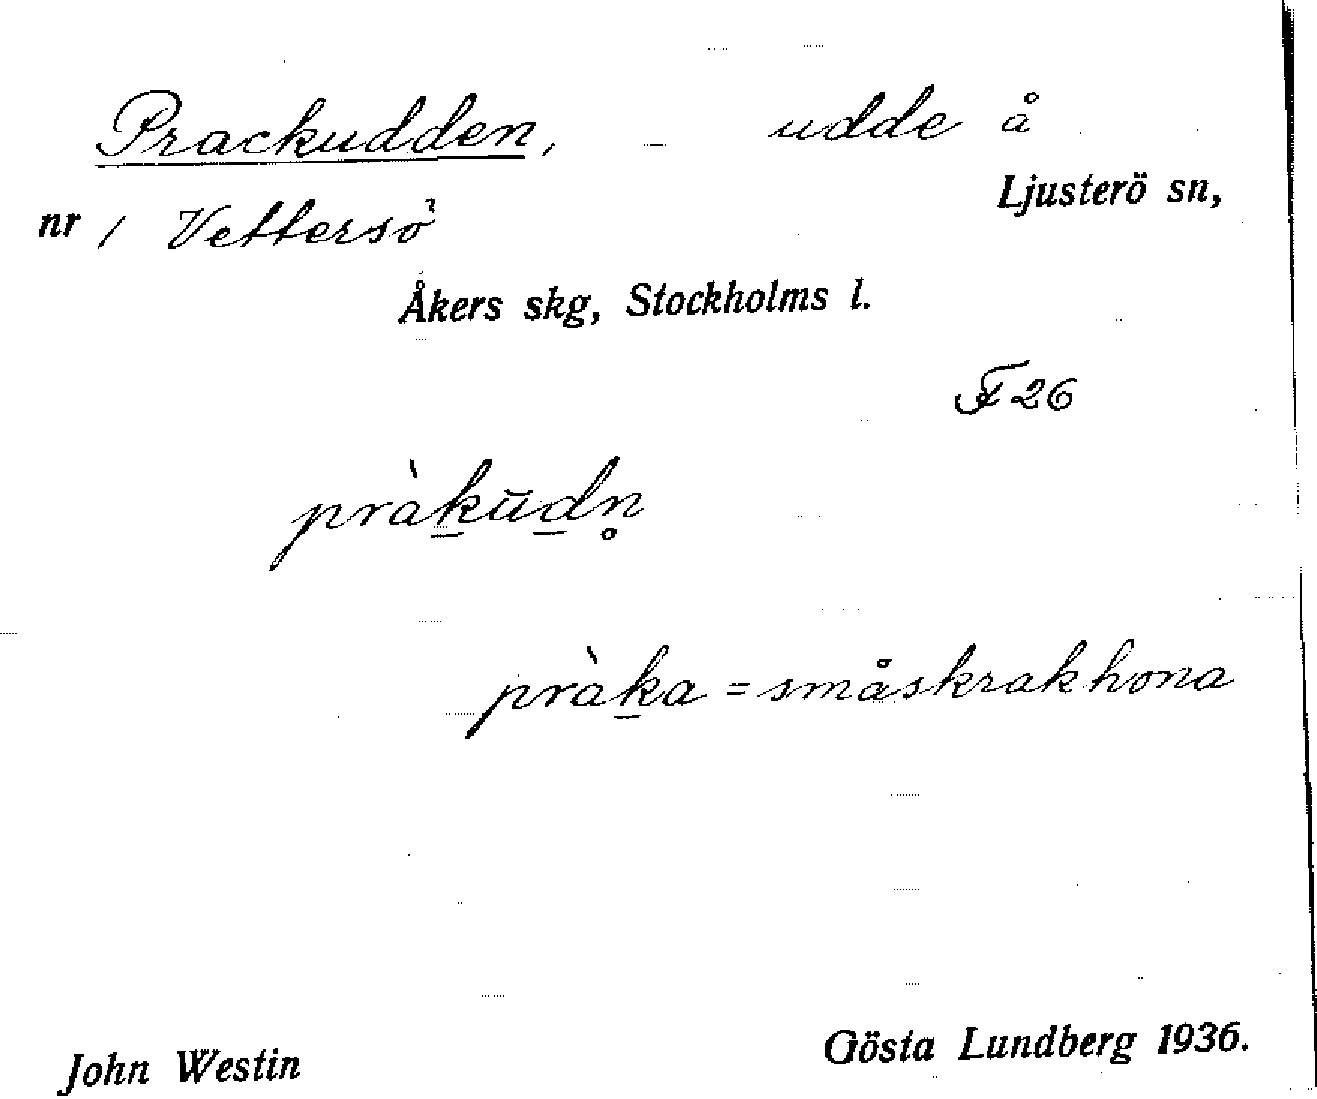 Prackudden, – udde å
Ljusterö sn,
nr 1 Vettersö
Åkers skg, Stockholms l.
F 26
pràkŭdn̥
pràka = småskrakhona
John Westin
Gösta Lundberg 1936.